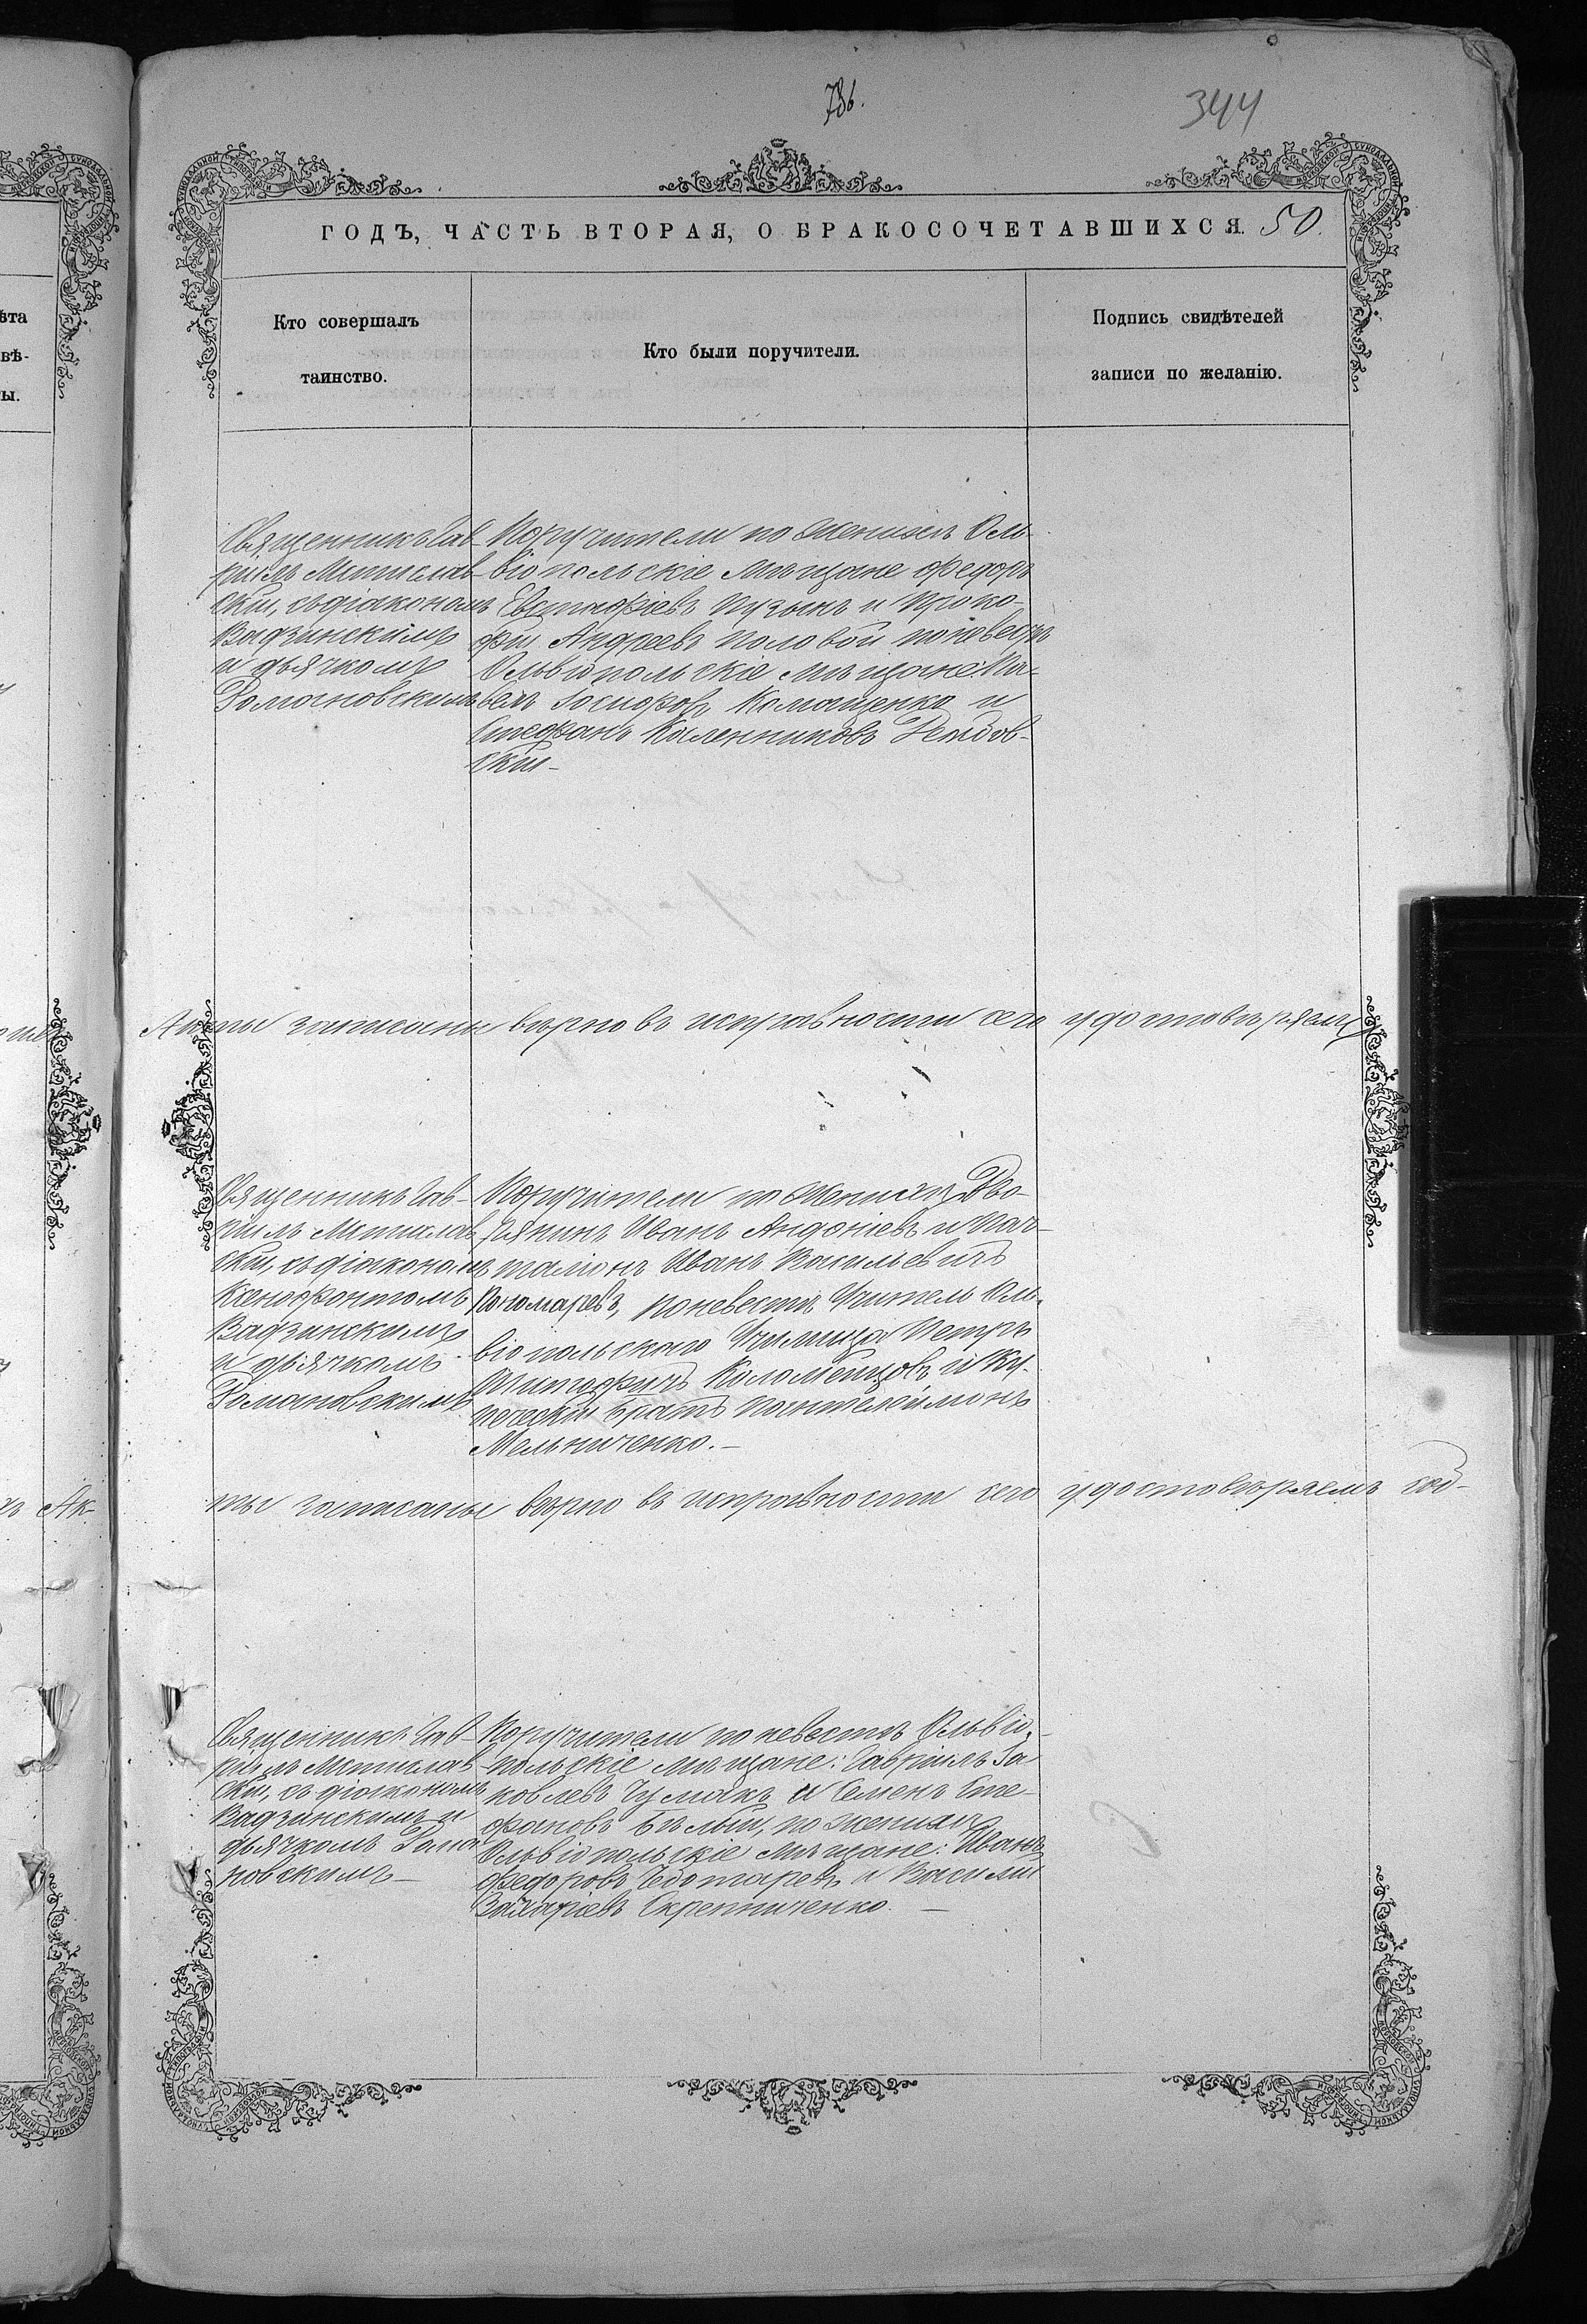 786.
344
ГОДЪ, ЧАСТЬ ВТОРАЯ, О БРАКОСОЧЕТАВШИХСЯ. 50.
Кто совершалъ
таинство.
Кто были поручители.
Подпись свидѣтелей
записи по желанію.
Священникъ Гав-
ріилъ Мстислав-
скій, съ діакономъ
Вадзинскимъ
и дьячкомъ
Романовскимъ
Поручители по женихѣ Оль-
віопольскіе мѣщане Федоръ
Евстафіевъ Пузынъ и Проко-
фій Андреевъ Половой по невѣстѣ
Ольвіопольскіе мѣщане: Па-
велъ Іосифовъ Комащенко и
Стефанъ Каленниковъ
скій
Акты записаны вѣрно въ исправности сего удостовѣряемъ
Священникъ Гав-
ріилъ Мстислав-
скій, съ діакономъ
Ксенофонтомъ
Вадзинскимъ
и дьячкомъ
Романовскимъ
Поручители по женихѣ Дво-
рянинъ Иванъ Андріевъ и
Иванъ Васильевичъ
Пономаревъ, по невестѣ Учитель Оль-
віопольскаго Училища Петръ
Коломейцовъ и Ку-
печескій братъ Пантелеймонъ
Мельниченко.
Ак-
ты записаны вѣрно въ исправности сего удостовѣряемъ
Священникъ Гав-
ріилъ Мстислав-
скій, съ діакономъ
Вадзинскимъ и
дьячкомъ Рома-
новскимъ
Поручители по невестѣ Ольвіо-
польскіе мѣщане: Гавріилъ Іа-
ковлевъ Чумакъ и Семенъ Сте-
фановъ Бѣлый, по женихѣ
Ольвіопольскіе мѣщане: Иванъ
Федоровъ Чеботаревъ и Василій
Захаріевъ Скрепниченко.